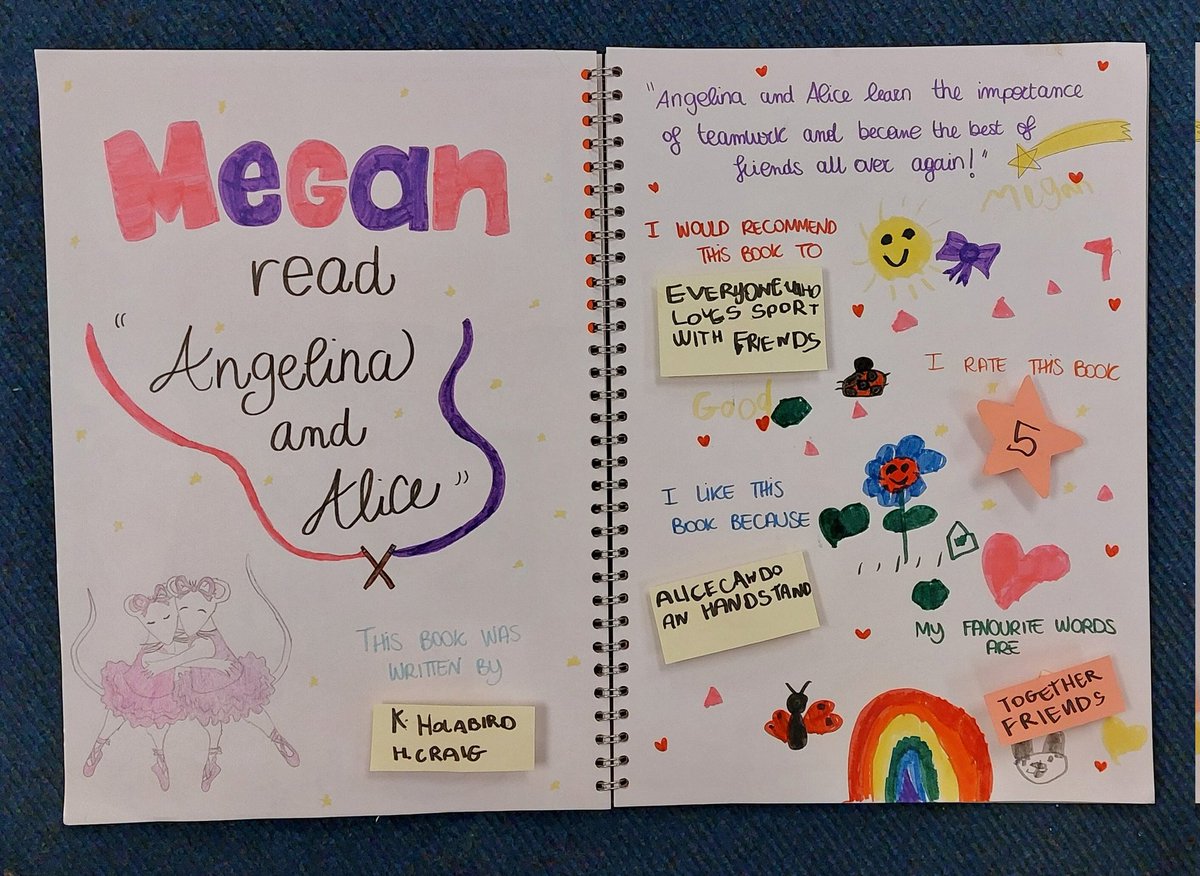 Megan
read
"Angelina
and
Alice"
THIS BOOK WAS
WRITTEN BY
K. HOLABIRD
H. CRAIG
"Angelina and Alice learn the importance
of teamwork and become the best of
friends all over again!"
Megan
7
I WOULD RECOMMEND
THIS BOOK TO
EVERYONE WHO
LOVES SPORT
WITH FRIENDS
Good
I RATE THIS BOOK
5
I LIKE THIS
BOOK BECAUSE
ALICE CAN DO
AN HANDSTAND
MY FAVOURITE WORDS
ARE
TOGETHER
FRIENDS